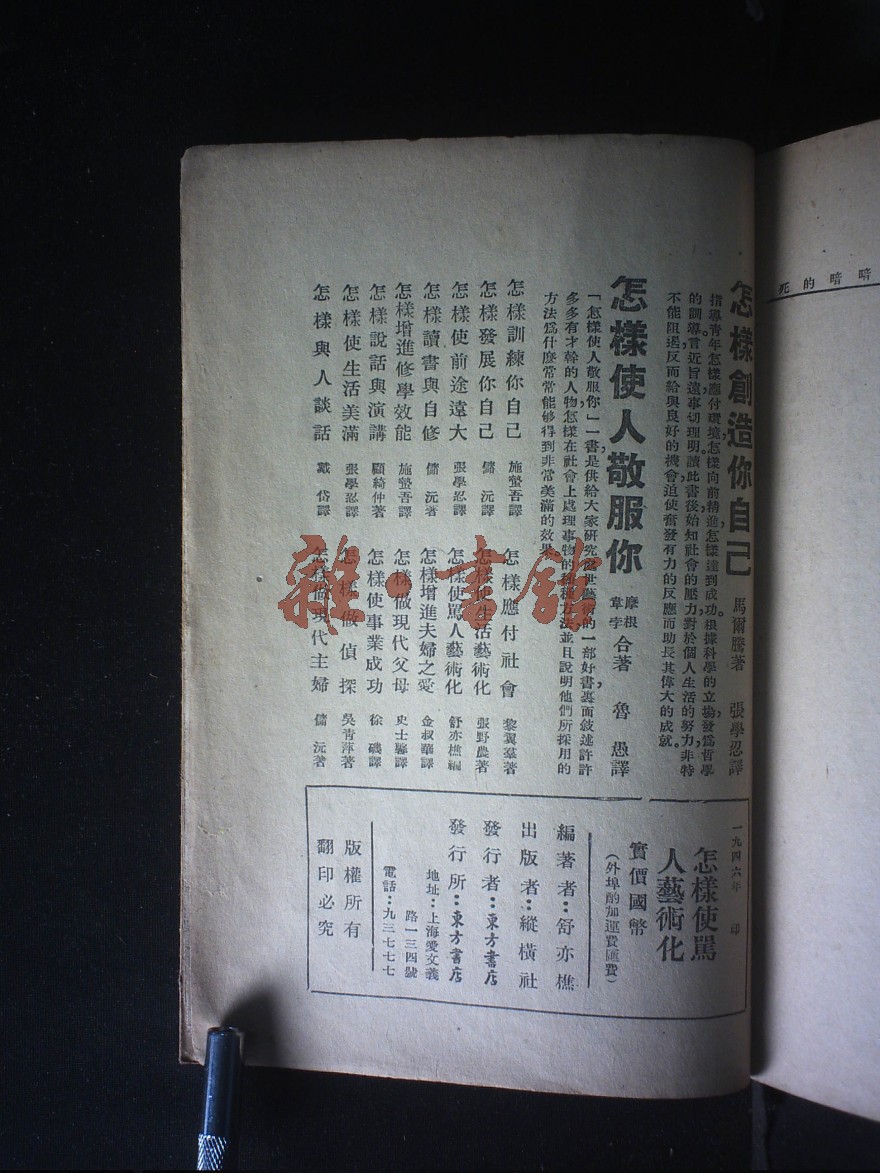 死的暗暗
怎樣創造你自己
馬爾騰著 張學忍譯
指導青年怎樣應付環境，怎樣向前精進，怎樣達到成功。根據科學的立場，發爲哲學
的訓導。言近旨遠，事切理明。讀此書後始知社會的壓力，對於個人生活的努力，非特
不能阻遏，反而給與良好的機會，迫使奮發有力的反應而助長其偉大的成就。
怎樣使人敬服你
摩根
韋李
合著 魯愚譯
「怎樣使人敬服你」一書，是供給大家研究處世藝術的一部好書，裏面敘述許許
多多有才幹的人物，怎樣在社會上處理事物的種種方法，並且說明他們所採用的
方法爲什麼常常能够得到非常美滿的效果。
怎樣訓練你自己 施螢吾譯
怎樣發展你自己 傭沅譯
怎樣使前途遠大 張學忍譯
怎樣讀書與自修 傭沅著
怎樣增進修學效能 施螢吾譯
怎樣說話與演講 顧綺仲著
怎樣使生活美滿 張學忍譯
怎樣與人談話 戴岱譯
怎樣應付社會 黎翼羣著
怎樣使生活藝術化 張野農著
怎樣使罵人藝術化 舒亦樵編
怎樣增進夫婦之愛 金叔華譯
怎樣做現代父母 史士譯
怎樣使事業成功 徐礎譯
怎樣做偵探 吳青萍著
怎樣做現代主婦 傭沅著
一九四六年 印
怎樣使罵
人藝術化
實價國幣
（外埠酌加運費匯費）
編著者：舒亦樵
出版者：縱橫社
發行者：東方書店
發行所：東方書店
地址：上海愛文義
路一三四號
電話：九三七七七
版權所有
翻印必究
雜·書館